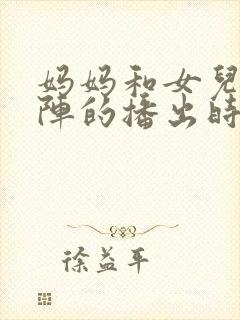 妈妈和女兒
陣的播出時
徐益平